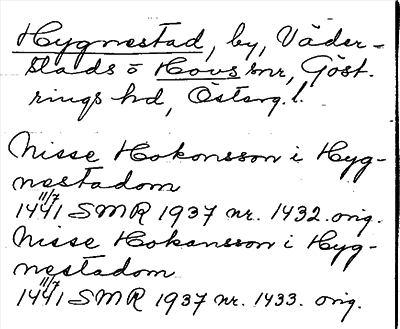 Hygnestad, by, Väder-
stads o Hovs snr, Göst-
rings hd, Österg.l.
Nisse Hakonsson i Hyg-
nestadom
11/7
1441 SMR 1937 nr. 1432. orig.
Nisse Hakansson i Hyg-
nestadom
11/7
1441 SMR 1937 nr. 1433. orig.